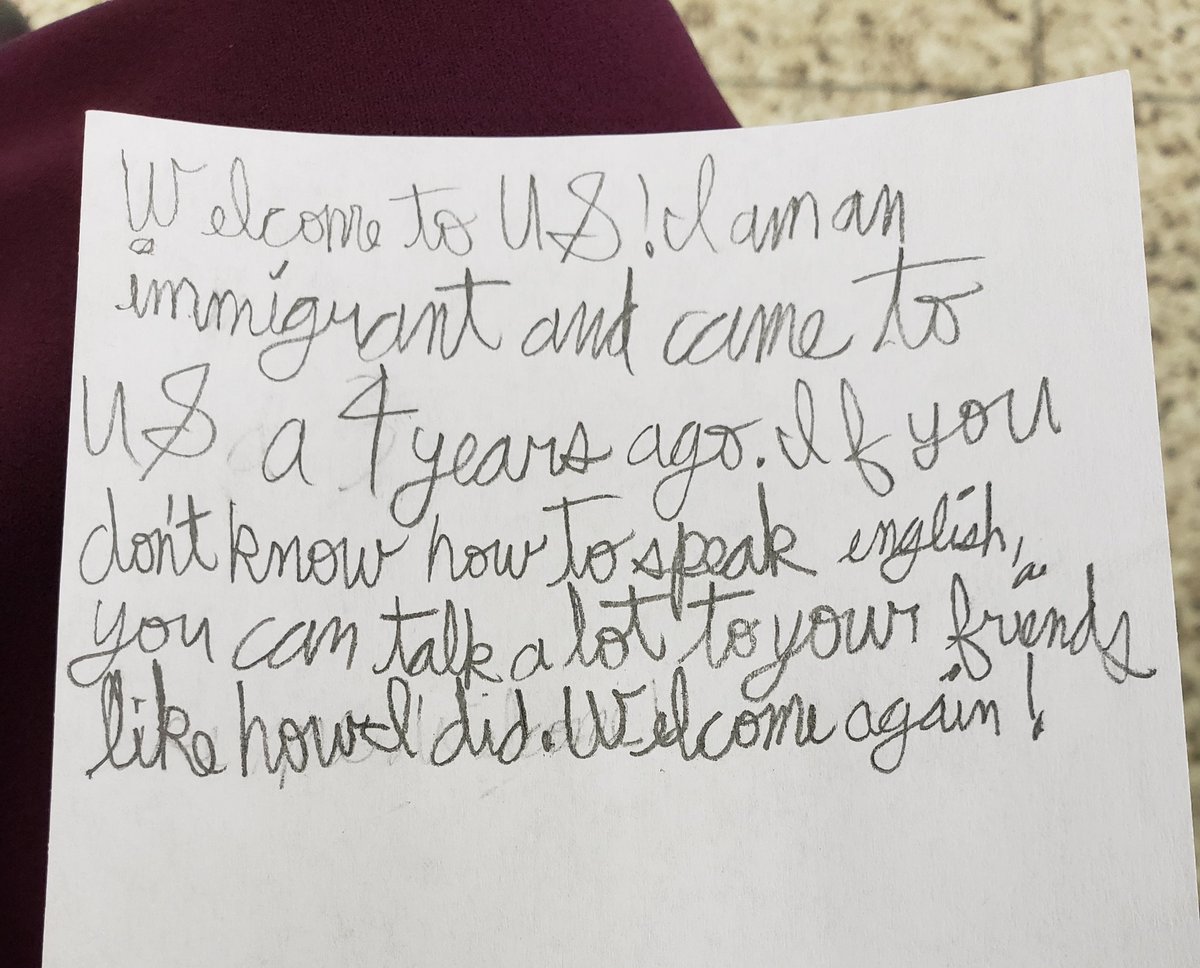 Welcome to US! I am an
immigrant and came to
US a 4 years ago. If you
don't know how to speak english,
you can talk a lot to your friends
like how I did. Welcome again!